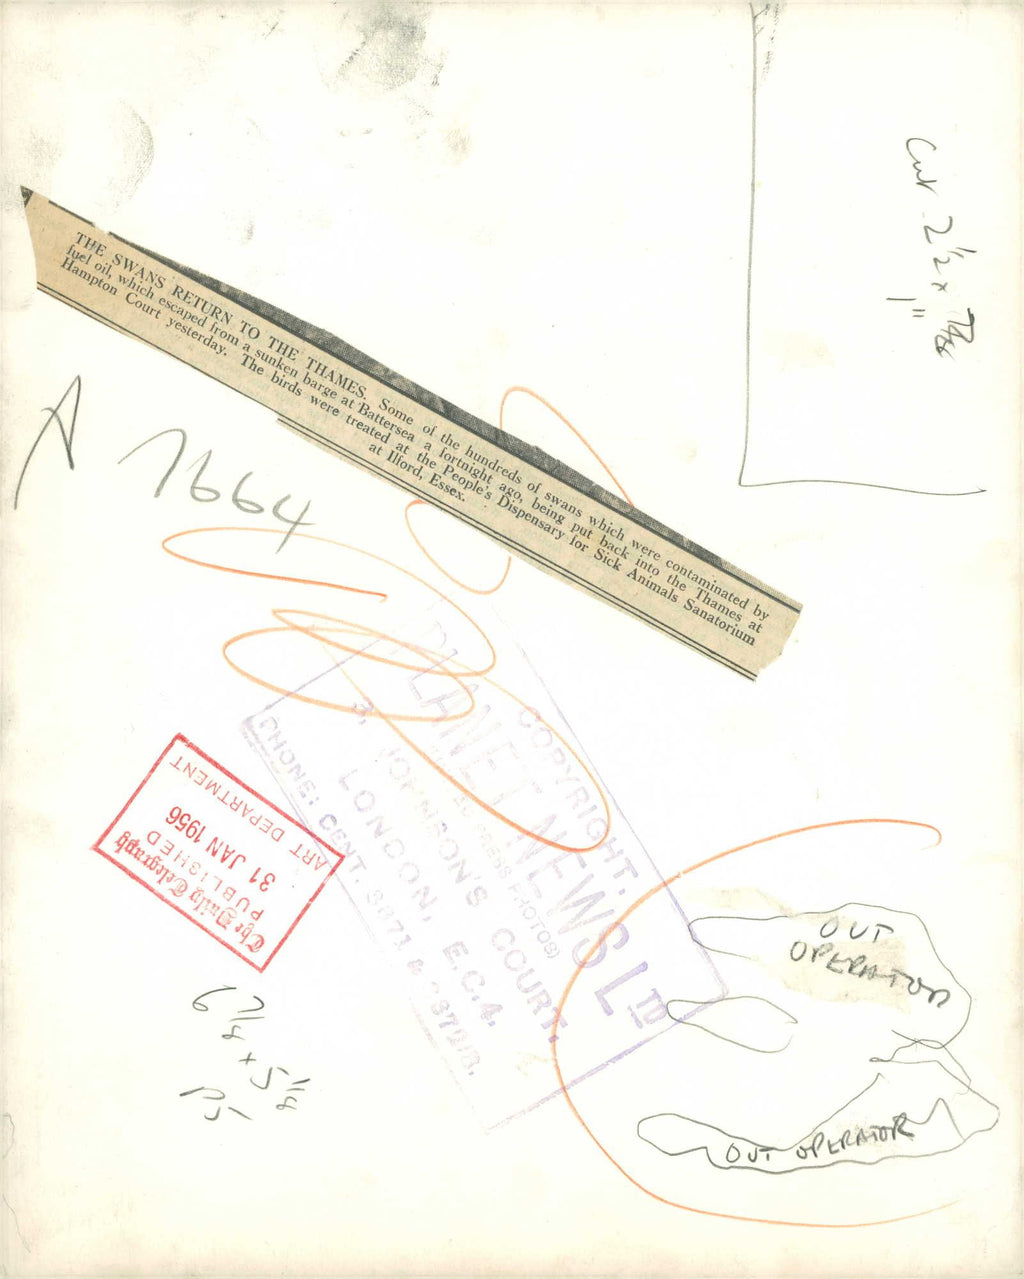 Cut 2 1/2 x
1"
THE SWANS RETURN TO THE THAMES. Some of the hundreds of swans which were contaminated by
fuel oil, which escaped from a sunken barge at Battersea a fortnight ago, being put back into the Thames at
Hampton Court yesterday. The birds were treated at the People's Dispensary for Sick Animals Sanatorium
at Ilford, Essex.
A 7664
COPYRIGHT.
PLANET NEWS LTD
(EXPRESS PHOTOS)
3, JOHNSON'S COURT,
LONDON, E.C.4.
PHONE: CENT. 3873 &
The Daily Telegraph
PUBLISHED
31 JAN 1956
ART DEPARTMENT
OUT
OPERATOR
OUT OPERATOR
6 7/4 x 5 1/4
P5